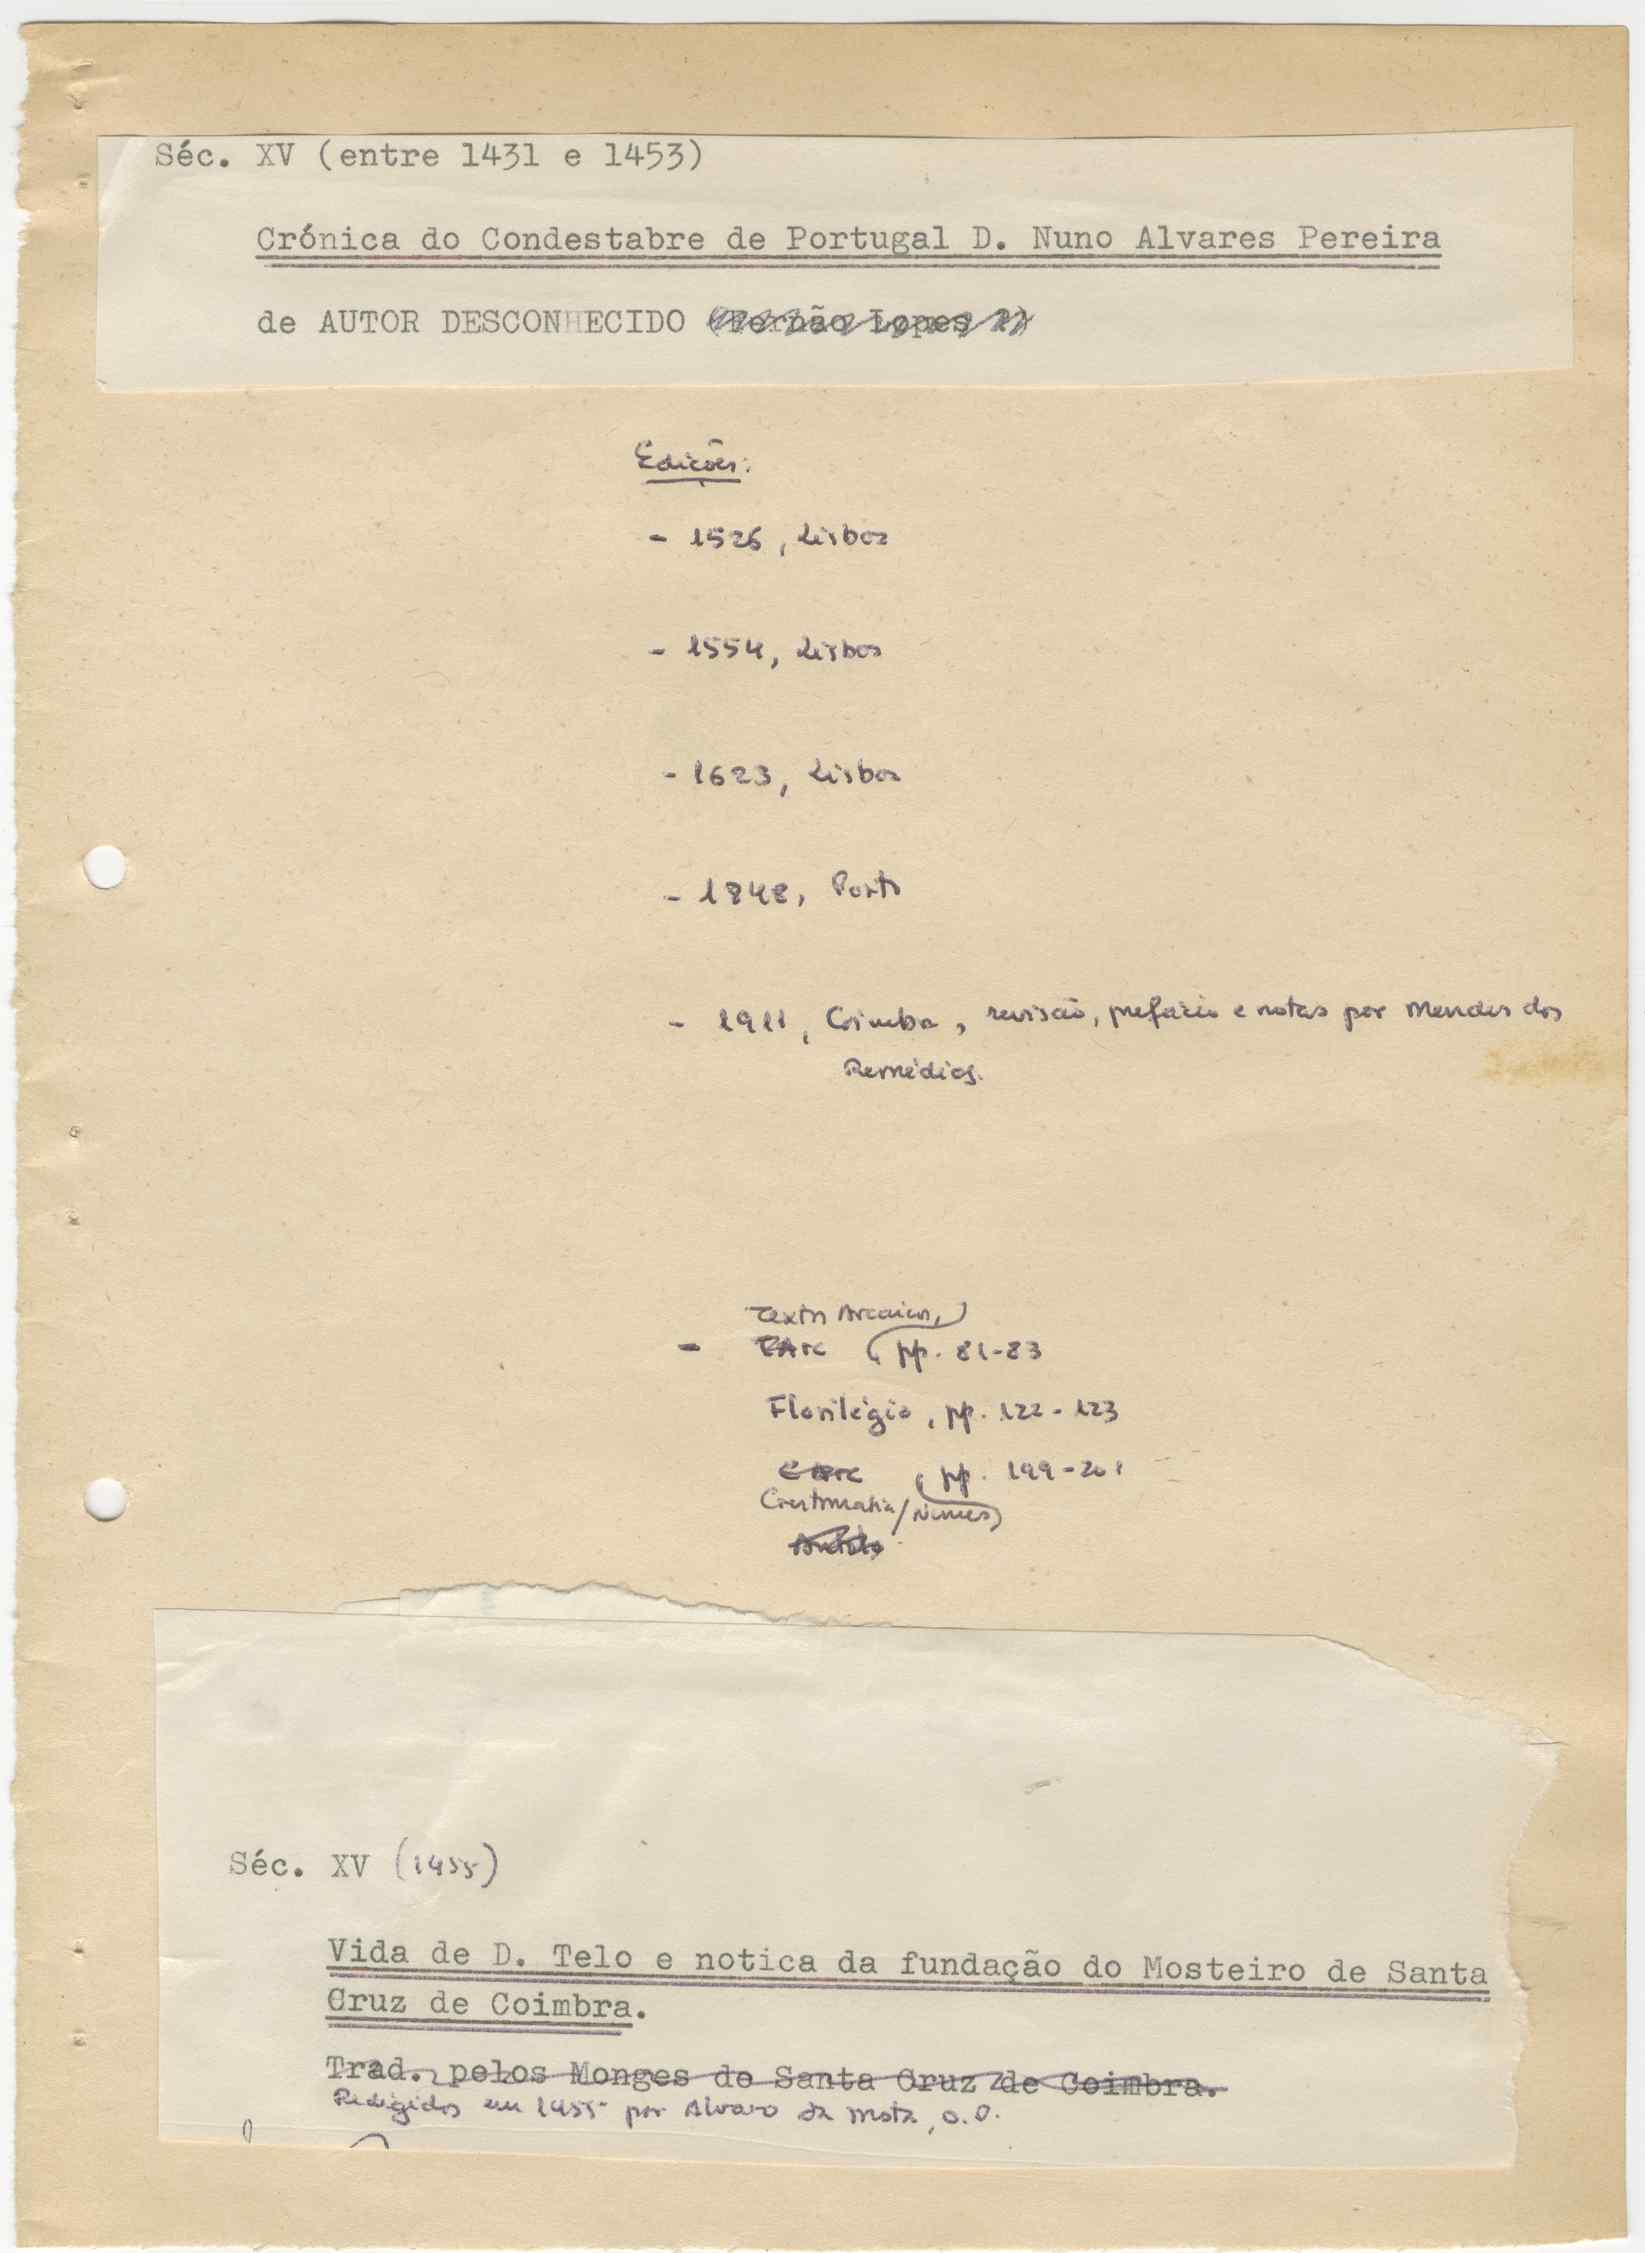 Séc. XV (entre 1431 e 1453)
Crónica do Condestabre de Portugal D. Nuno Alvares Pereira
de AUTOR DESCONHECIDO (Fernão Lopes ?)
Edições:
- 1526, Lisboa
- 1554, Lisboa
- 1623, Lisboa
- 1848, Porto
- 1911, Coimbra, revisão, prefácio e notas por Mendes dos
Remédios.
Textos Arcaicos,
- TArc , pp. 81-83
Florilégio, pp. 122-123
CArc , pp. 199-201
Crestomatia/Nunes
Séc. XV (1455)
Vida de D. Telo e notica da fundação do Mosteiro de Santa
Cruz de Coimbra.
Trad. pelos Monges de Santa Cruz de Coimbra.
Redigidos em 1455 por Alvaro da Mota, O.P.